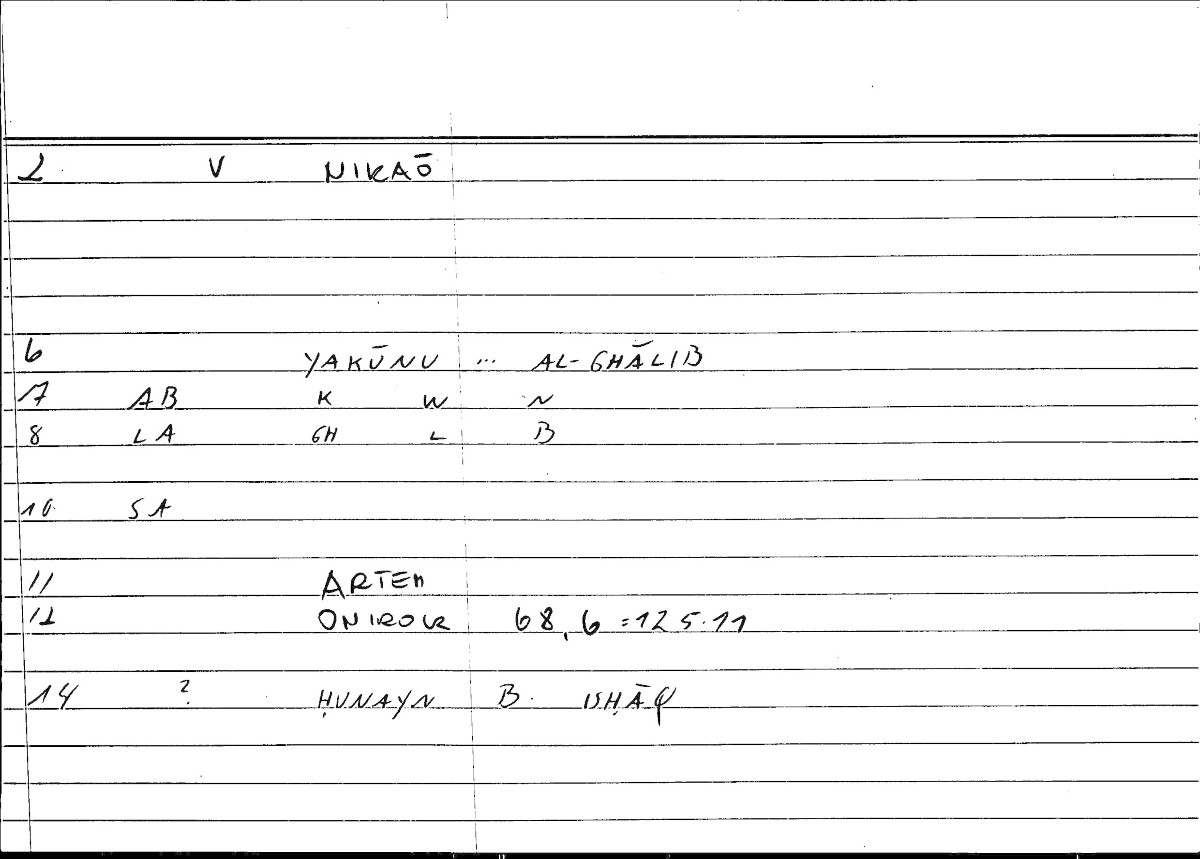 2 V NIKAŌ
6 YAKŪNU ... AL-GHĀLIB
7 AB K W N
8 LA GH L B
10 SA
11 ARTEM
12 ONIROK 68,6 = 125.11
14 ? ḤUNAYN B. ISḤĀQ